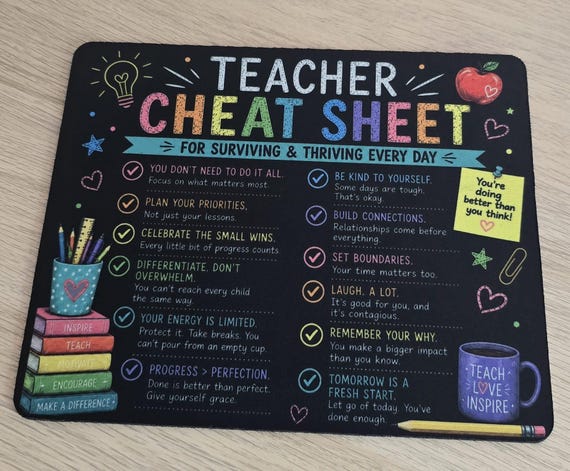 TEACHER
CHEAT SHEET
FOR SURVIVING & THRIVING EVERY DAY
YOU DON'T NEED TO DO IT ALL.
Focus on what matters most.
PLAN YOUR PRIORITIES,
Not just your lessons.
CELEBRATE THE SMALL WINS.
Every little bit of progress counts
DIFFERENTIATE. DON'T
OVERWHELM.
You can't reach every child
the same way.
YOUR ENERGY IS LIMITED.
Protect it. Take breaks. You
can't pour from an empty cup.
PROGRESS > PERFECTION.
Done is better than perfect.
Give yourself grace.
BE KIND TO YOURSELF.
Some days are tough.
That's okay.
BUILD CONNECTIONS.
Relationships come before
everything.
SET BOUNDARIES.
Your time matters too.
LAUGH. A LOT.
It's good for you, and
it's contagious.
REMEMBER YOUR WHY.
You make a bigger impact
than you know.
TOMORROW IS A
FRESH START.
Let go of today. You've
done enough.
You're
doing
better than
you think!
INSPIRE
TEACH
MOTIVATE
ENCOURAGE
MAKE A DIFFERENCE
TEACH
LOVE
INSPIRE